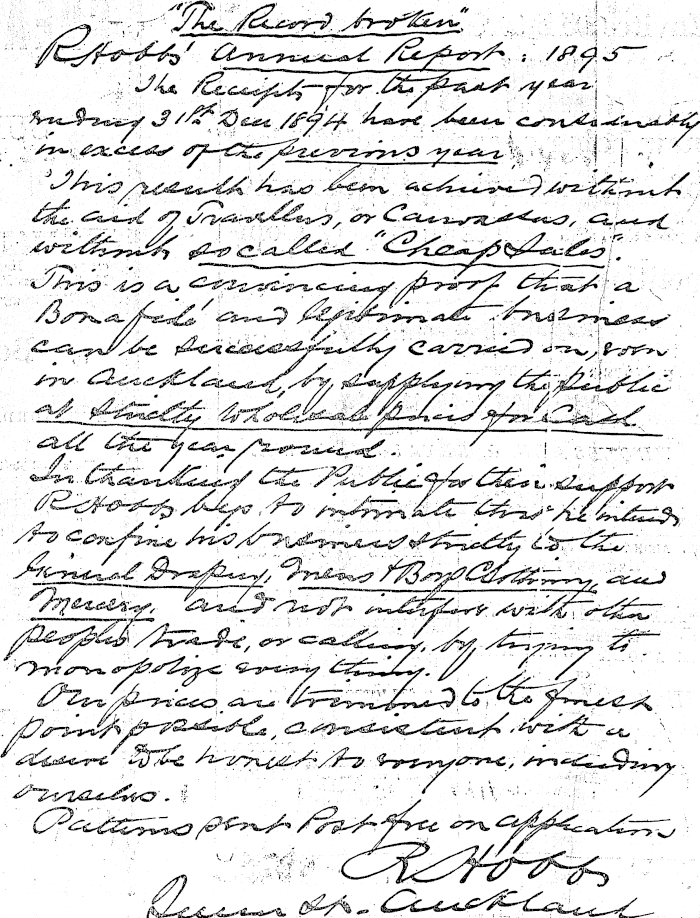 "The Record broken"
R Hobbs' Annual Report : 1895
The Receipts for the past year
ending 31st Dec 1894 have been considerably
in excess of the previous year
This result has been achieved without
the aid of Travellers, or Canvassers, and
without so called "Cheap Sales".
This is a convincing proof that a
Bonafide and legitimate business
can be successfully carried on, even
in Auckland, by supplying the public
at strictly wholesale prices for Cash
all the year round.
In thanking the Public for their support
R Hobbs begs to intimate that he intends
to confine his business strictly to the
General Drapery, Mens & Boys Clothing, and
Mercery, and not interfere with other
peoples trade, or calling, by trying to
monopolize everything.
Our prices are trimmed to the finest
point possible, consistent with a
desire to be honest to everyone, including
ourselves.
Patterns sent Post free on application
R Hobbs
Queen St. Auckland